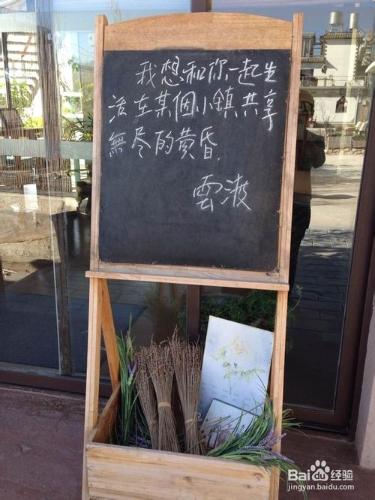 我想和你一起生
活在某個小鎮共享
無尽的黄昏.
雲波
Baidu经验
jingyan.baidu.com